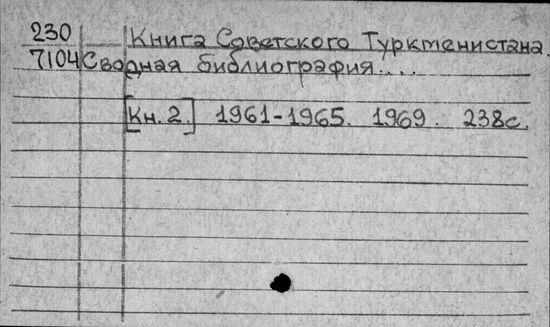 230 Книга Советского Туркменистана.
7104 Сводная библиография....
[Кн. 2.] 1961-1965. 1969. 238с.